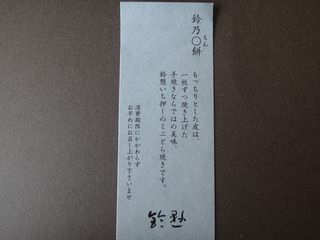 鈴乃〇餅
えん
もっちりとした皮は、
一枚ずつ焼き上げた
手焼きならではの美味。
鈴懸いち押しのミニどら焼きです。
消費期限にかかわらず
お早めにお召し上がり下さいませ
鈴懸